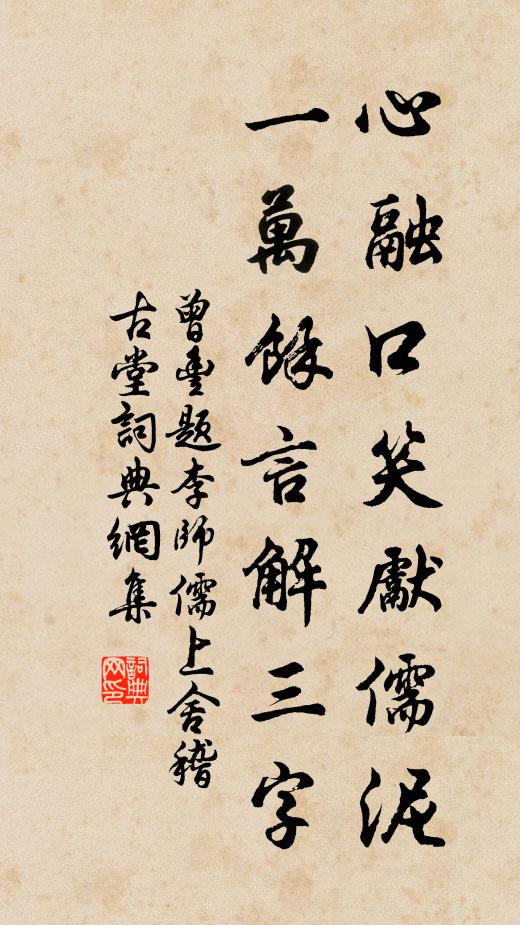 心融口笑獻儒泥
一萬餘言解三字
曾豐題李師儒上舍稽
古堂詞典網集
詞典
网印